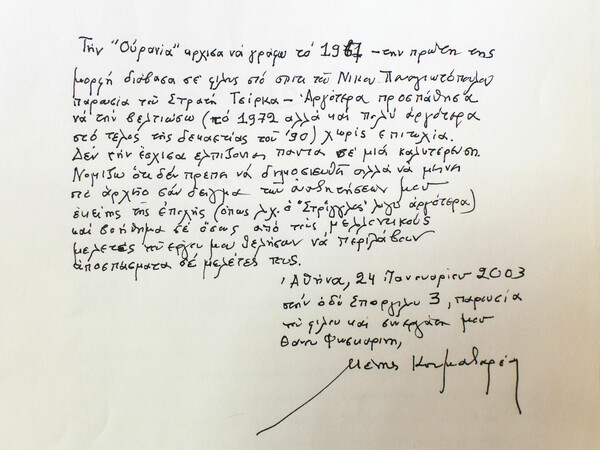 Τὴν "Οὐρανία" ἄρχισα νὰ γράφω τὸ 1961 – την πρώτη της
μορφὴ διάβασα σε φίλους στὸ σπίτι τοῦ Νίκου Παναγιωτόπουλου
παρουσία τοῦ Στρατῆ Τσίρκα – Ἀργότερα προσπάθησα
νὰ τὴν βελτιώσω (τὸ 1972 ἀλλὰ καὶ πολὺ ἀργότερα
στὸ τέλος τῆς δεκαετίας τοῦ '90) χωρὶς ἐπιτυχία.
Δὲν τὴν ἔσχισα ἐλπίζοντας πάντα σὲ μιὰ καλυτέρευση.
Νομίζω ὅτι δὲν πρέπει νὰ δημοσιευθῆ ἀλλὰ νὰ μείνει
στὸ ἀρχεῖο σὰν δεῖγμα τῶν ἀναζητήσεών μου
ἐκείνης τῆς ἐποχῆς (ὅπως λ.χ. ὁ "Στρίγγλος" λίγο ἀργότερα)
καὶ βοήθημα σὲ ὅσους ἀπὸ τοὺς μελλοντικοὺς
μελετητὲς τοῦ ἔργου μου θελήσουν νὰ περιλάβουν
ἀποσπάσματα σὲ μελέτες τους.
Ἀθήνα, 24 Ἰανουαρίου 2003
στὴν ὁδὸ Σποργίλου 3, παρουσία
τοῦ φίλου καὶ συνεργάτη μου
Θανου Φωσκαρίνη,
Μένης Κουμανταρέας